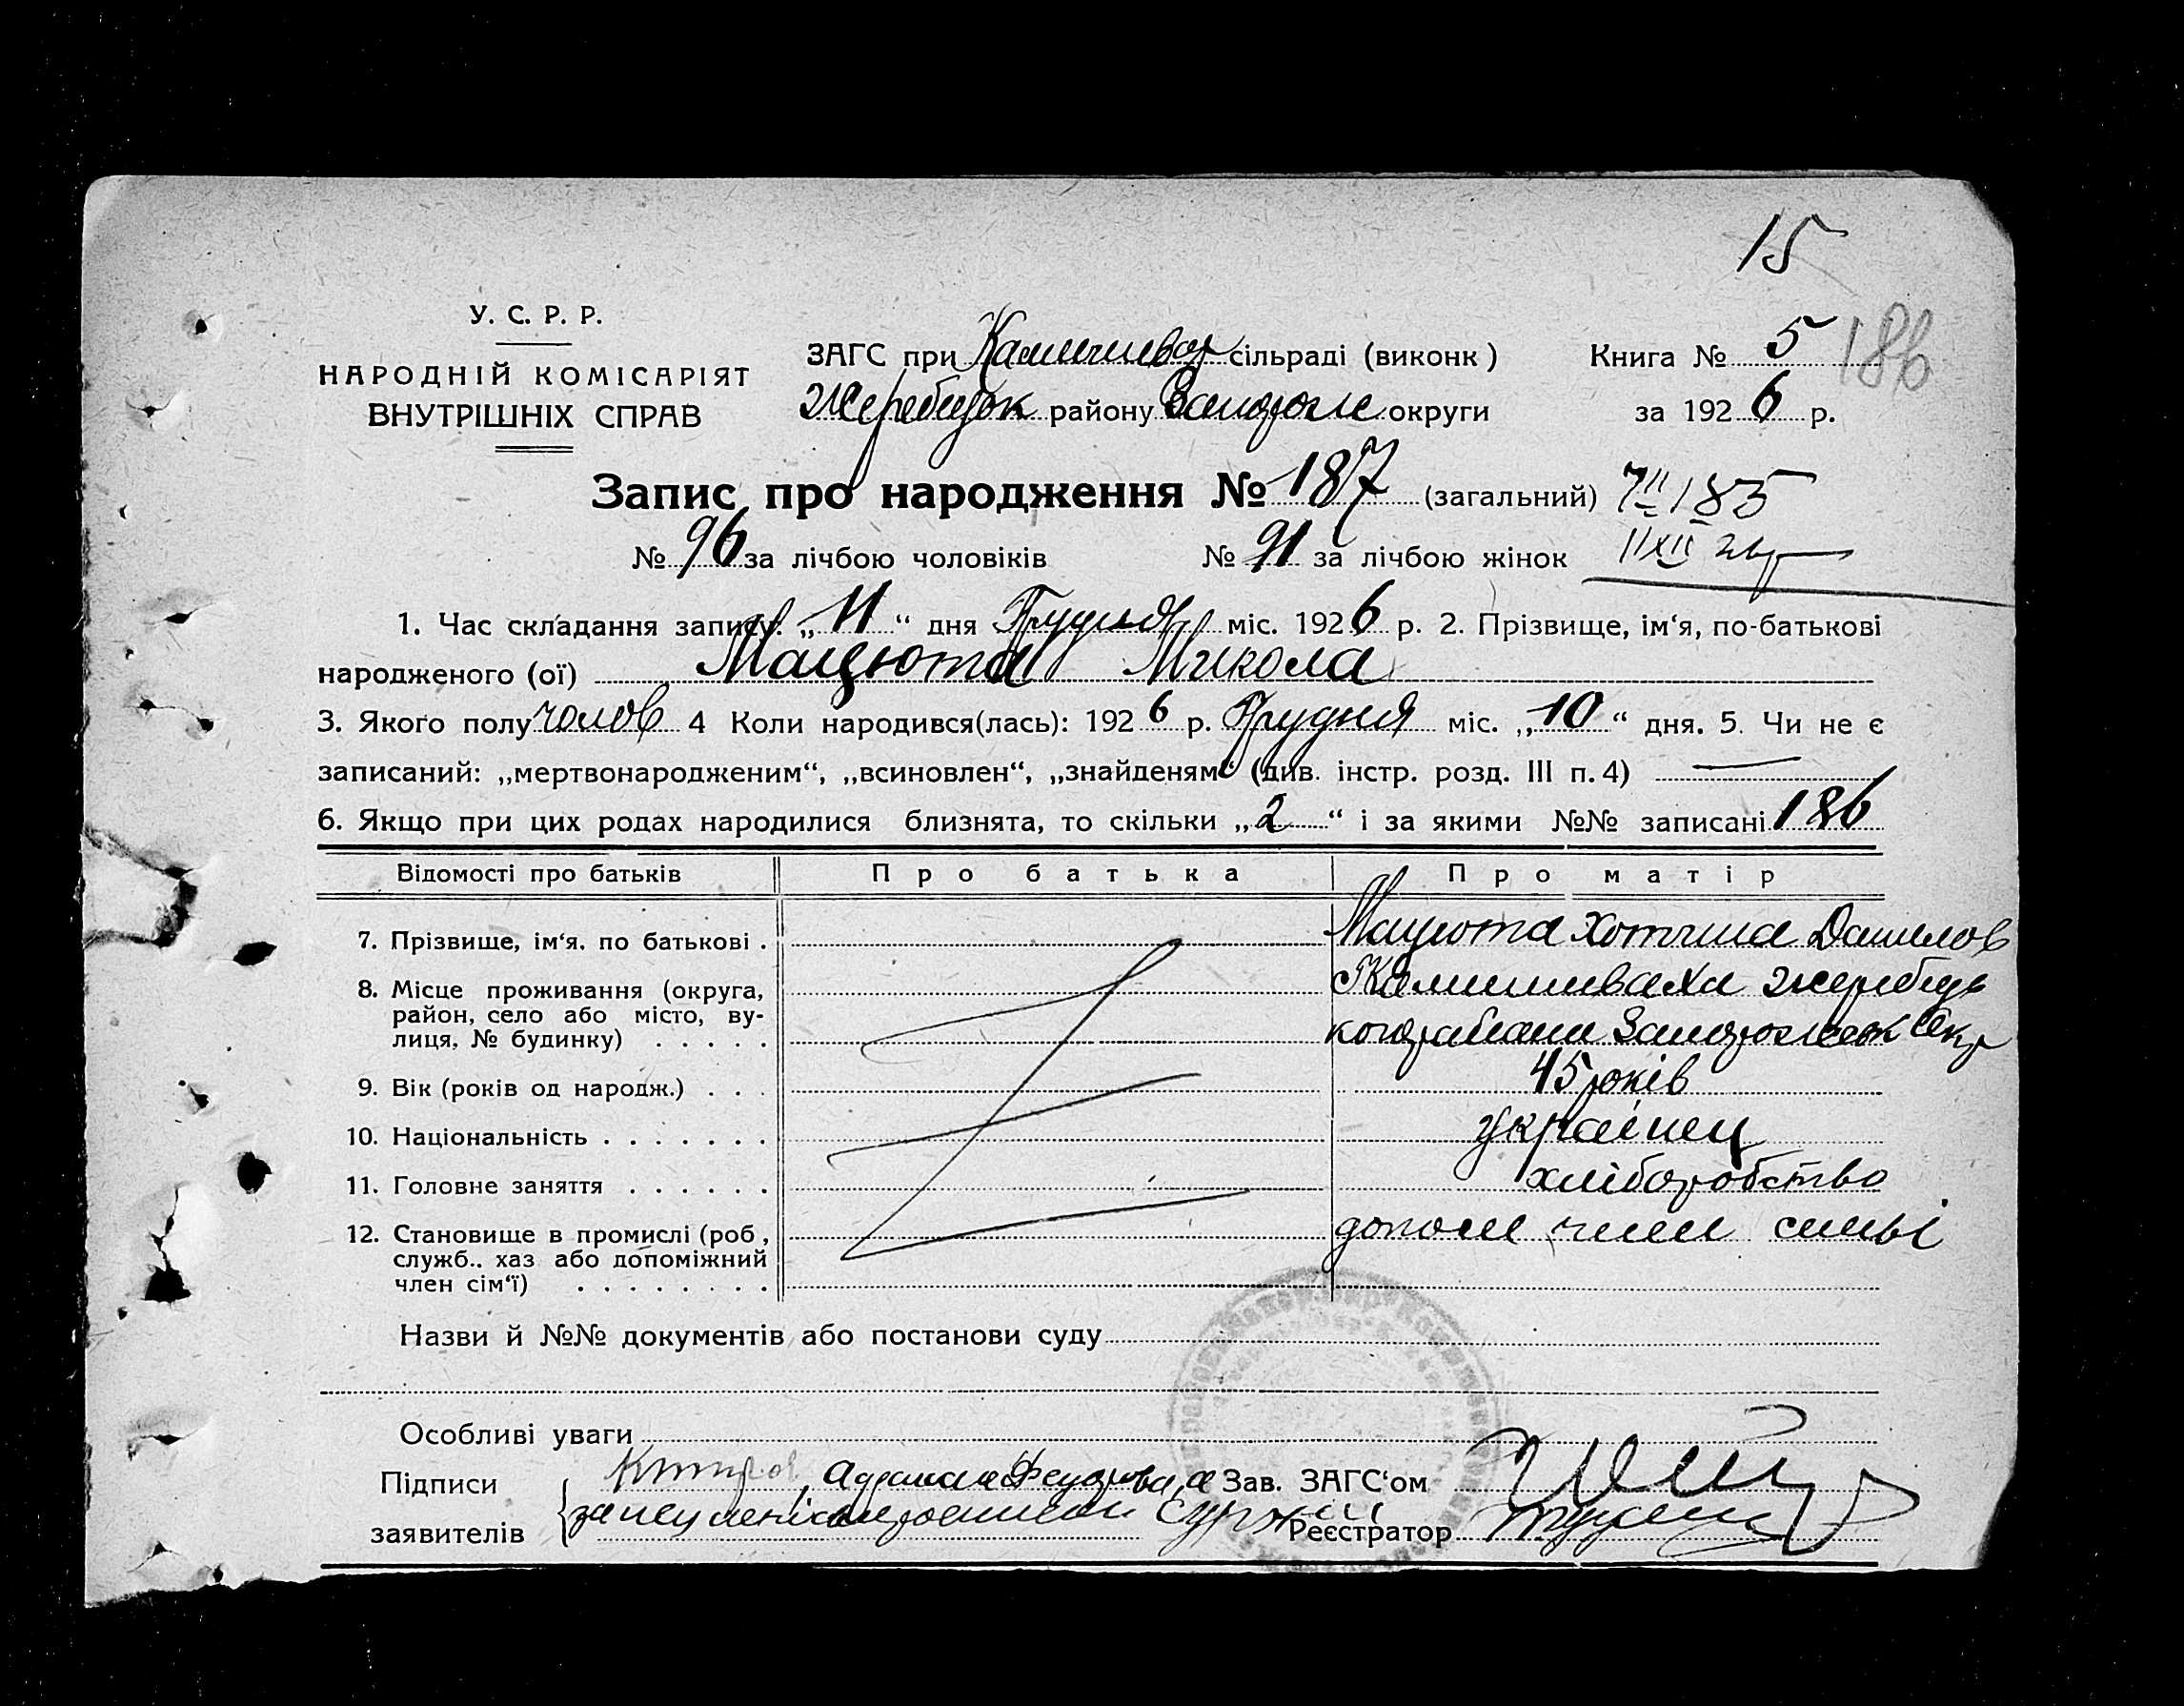 15
У. С. Р. Р.
НАРОДНІЙ КОМІСАРІЯТ
ВНУТРІШНІХ СПРАВ
ЗАГС при Камишева сільраді (виконк)
Жеребецьк району Запоріж округи
Книга № 5 186
за 1926 р.
Запис про народження № 187 (загальний) 185
№ 96 за лічбою чоловіків № 91 за лічбою жінок 11 XII 26 р
1. Час складання запису: „11“ дня Грудня міс. 1926 р. 2. Прізвище, ім‘я, по-батькові
народженого (ої) Мацюта Микола
3. Якого полу чолов 4 Коли народився(лась): 1926 р. Грудня міс. „10“ дня. 5. Чи не є
записаний: „мертвонародженим“, „всиновлен“, „знайденям“ (див. інстр. розд. III п. 4) —
6. Якщо при цих родах народилися близнята, то скільки „2“ і за якими №№ записані 186
Відомості про батьків Про батька Про матір
7. Прізвище, ім‘я, по батькові . Мацюта Данилов
8. Місце проживання (округа, Камишиваха Жеребець
район, село або місто, ву-
лиця, № будинку) . . . . . Запорожськ Окр
9. Вік (років од народж.) . . . 45 років
10. Національність . . . . . . . українец
11. Головне заняття . . . . . . хліборобство
12. Становище в промислі (роб, допом член симьі
служб.. хаз або допоміжний
член сім‘ї) . . . . . . . .
Назви й №№ документів або постанови суду
Особливі уваги
Підписи Зав. ЗАГС‘ом
заявителів Реєстратор